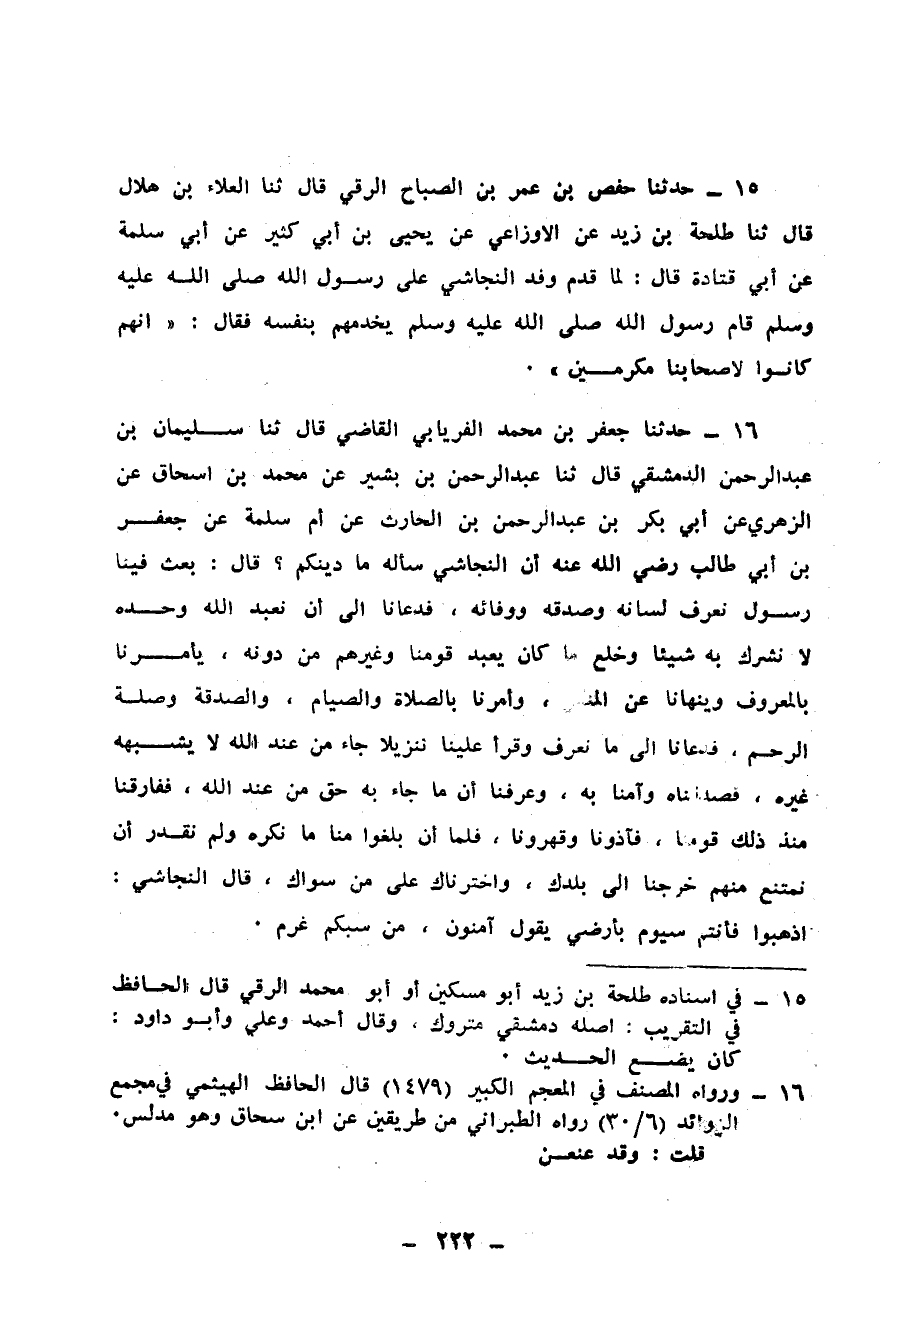 ١٥ ــ حدثنا حفص بن عمر بن الصباح الرقي قال ثنا العلاء بن هلال
قال ثنا طلحة بن زيد عن الاوزاعي عن يحيى بن أبي كثير عن أبي سلمة
عن أبي قتادة قال : لما قدم وفد النجاشي على رسول الله صلى الله عليه
وسلم قام رسول الله صلى الله عليه وسلم يخدمهم بنفسه فقال : « انهم
كانوا لاصحابنا مكرمين » ٠
١٦ ــ حدثنا جعفر بن محمد الفريابي القاضي قال ثنا سليمان بن
عبدالرحمن الدمشقي قال ثنا عبدالرحمن بن بشير عن محمد بن اسحاق عن
الزهري عن أبي بكر بن عبدالرحمن بن الحارث عن أم سلمة عن جعفر
بن أبي طالب رضي الله عنه أن النجاشي سأله ما دينكم ؟ قال : بعث فينا
رسول نعرف لسانه وصدقه ووفائه ، فدعانا الى أن نعبد الله وحده
لا نشرك به شيئا وخلع ما كان يعبد قومنا وغيرهم من دونه ، يأمرنا
بالمعروف وينهانا عن ، وأمرنا بالصلاة والصيام ، والصدقة وصلة
الرحم ، فدعانا الى ما نعرف وقرأ علينا تنزيلا جاء من عند الله لا يشبهه
غيره ، فصدقناه وآمنا به ، وعرفنا أن ما جاء به حق من عند الله ، ففارقنا
منذ ذلك قومنا ، فآذونا وقهرونا ، فلما أن بلغوا منا ما نكره ولم نقدر أن
نمتنع منهم خرجنا الى بلدك ، واخترناك على من سواك ، قال النجاشي :
اذهبوا فأنتم سيوم بأرضي يقول آمنون ، من سبكم غرم ٠
١٥ ــ في اسناده طلحة بن زيد أبو مسكين أو أبو محمد الرقي قال الحافظ
في التقريب : اصله دمشقي متروك ، وقال أحمد وعلي وأبو داود :
كان يضع الحديث ٠
١٦ ــ ورواه المصنف في المعجم الكبير (١٤٧٩) قال الحافظ الهيثمي في مجمع
الزوائد (٣٠/٦) رواه الطبراني من طريقين عن ابن سحاق وهو مدلس٠
قلت : وقد عنعن
ــ ٢٢٢ ــ